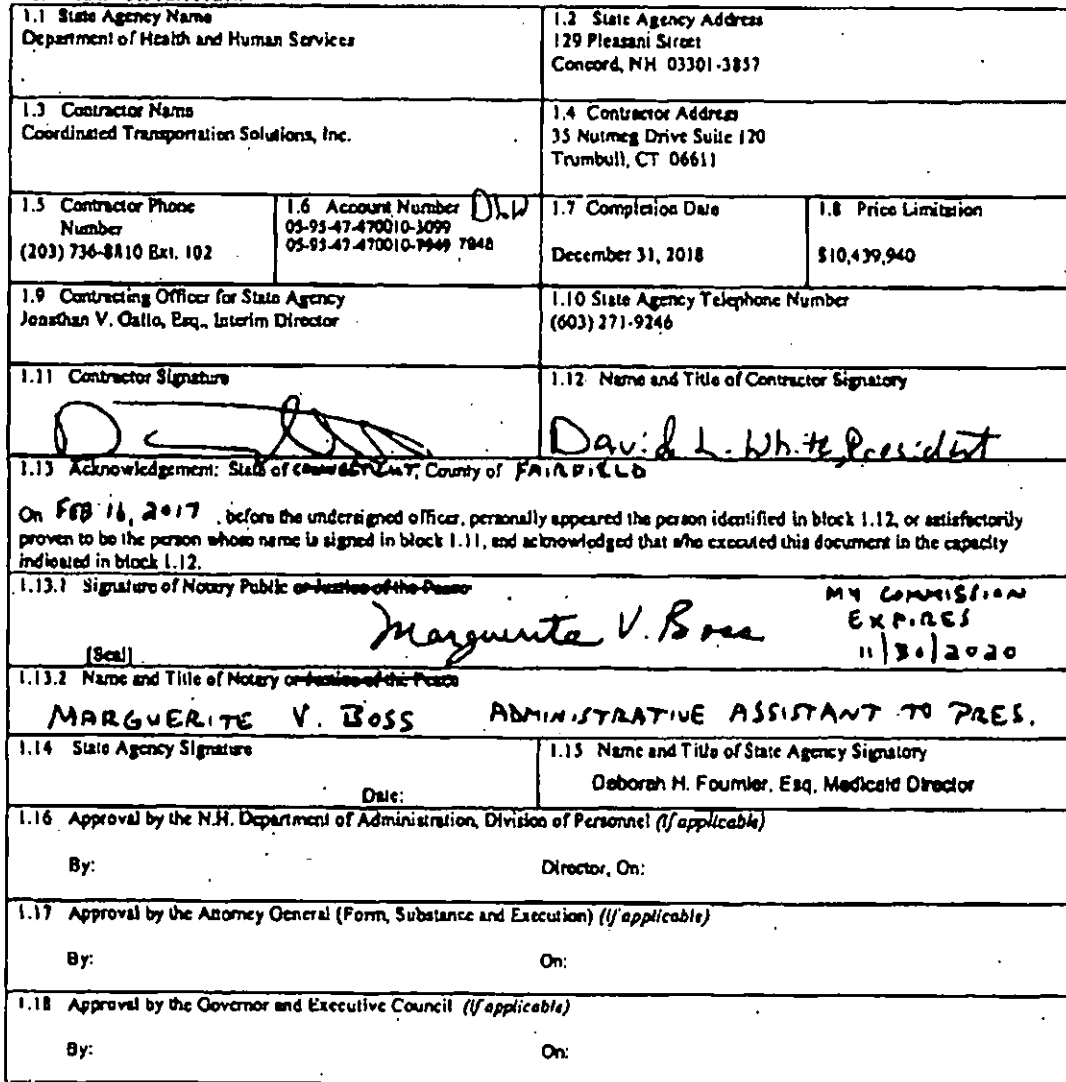 1.1 State Agency Name
Department of Health and Human Services
1.2 State Agency Address
129 Pleasant Street
Concord, NH 03301-3857
1.3 Contractor Name
Coordinated Transportation Solutions, Inc.
1.4 Contractor Address
35 Nutmeg Drive Suite 120
Trumbull, CT 06611
1.5 Contractor Phone
Number
(203) 736-8810 Ext. 102
1.6 Account Number DLW
05-95-47-470010-3099
05-95-47-470010-7949 7948
1.7 Completion Date
December 31, 2018
1.8 Price Limitation
$10,439,940
1.9 Contracting Officer for State Agency
Jonathan V. Gallo, Esq., Interim Director
1.10 State Agency Telephone Number
(603) 271-9246
1.11 Contractor Signature
1.12 Name and Title of Contractor Signatory
David L. White, President
1.13 Acknowledgement: State of CONNECTICUT, County of FAIRFIELD
On FEB 16, 2017, before the undersigned officer, personally appeared the person identified in block 1.12, or satisfactorily
proven to be the person whose name is signed in block 1.11, and acknowledged that s/he executed this document in the capacity
indicated in block 1.12.
1.13.1 Signature of Notary Public or Justice of the Peace
Marguerite V. Boss
MY COMMISSION
EXPIRES
11/30/2020
[Seal]
1.13.2 Name and Title of Notary or Justice of the Peace
MARGUERITE V. BOSS ADMINISTRATIVE ASSISTANT TO PRES.
1.14 State Agency Signature
Date:
1.15 Name and Title of State Agency Signatory
Deborah H. Fournier, Esq, Medicaid Director
1.16 Approval by the N.H. Department of Administration, Division of Personnel (if applicable)
By: Director, On:
1.17 Approval by the Attorney General (Form, Substance and Execution) (if applicable)
By: On:
1.18 Approval by the Governor and Executive Council (if applicable)
By: On: